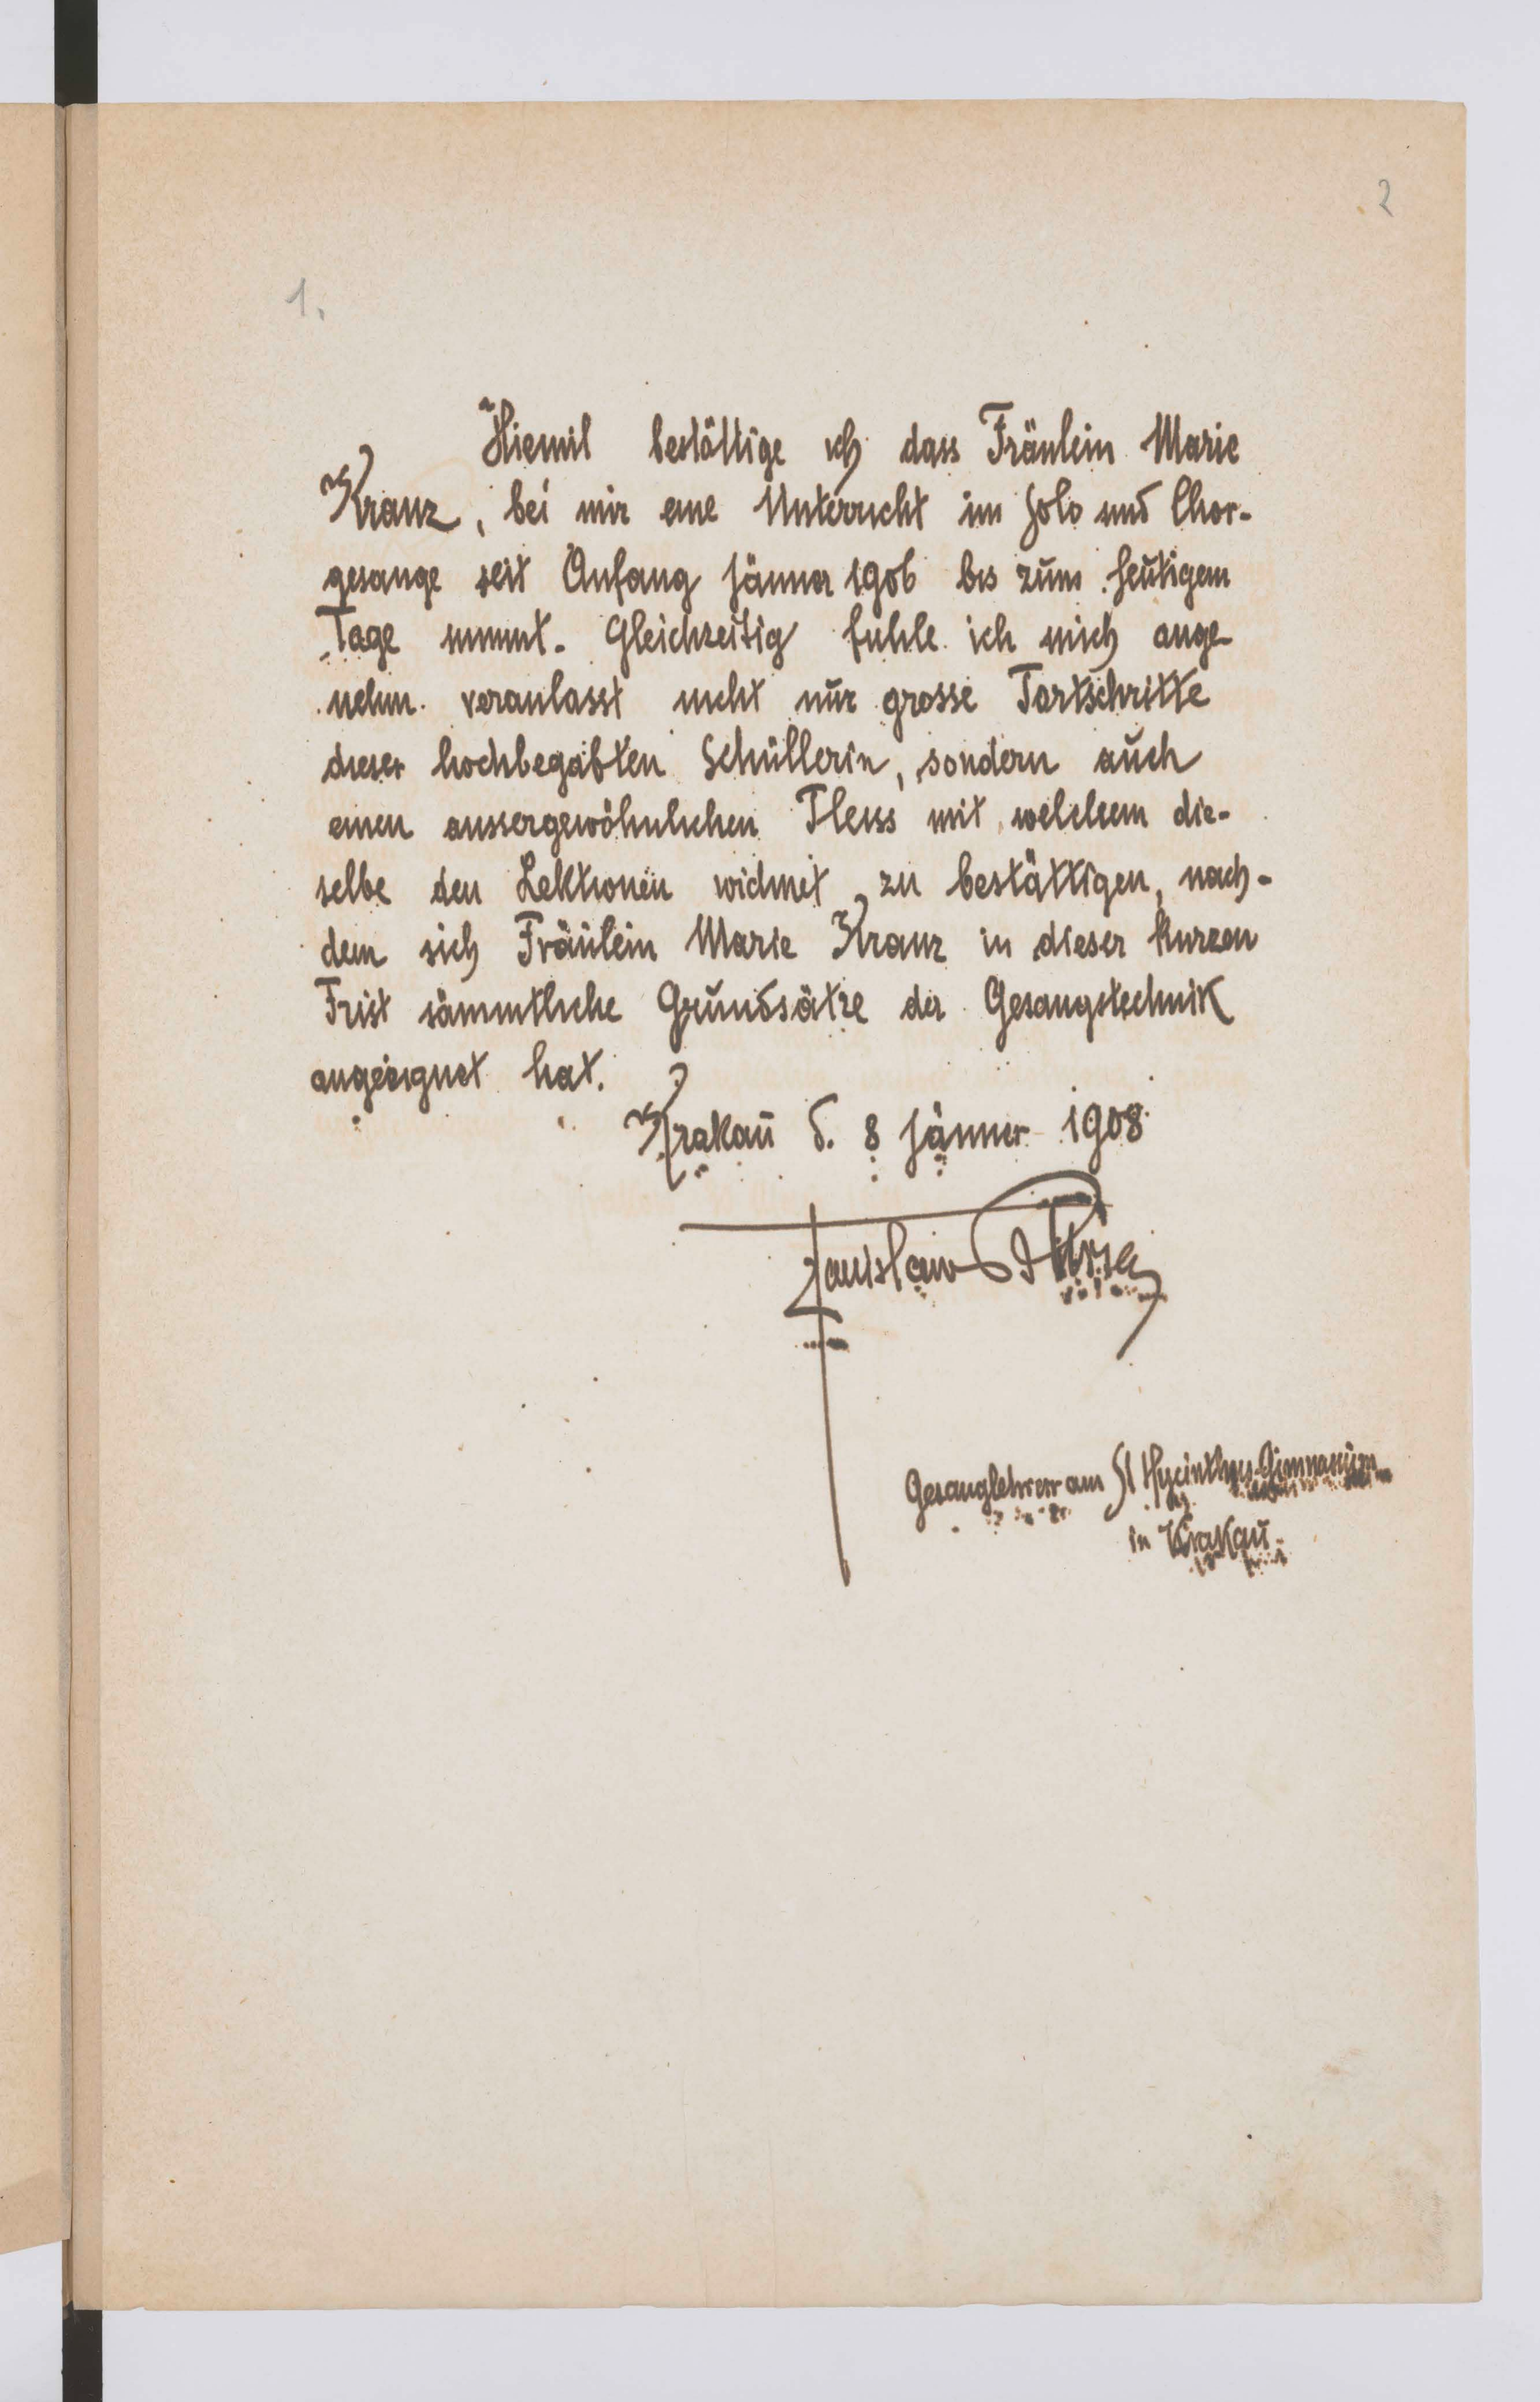 2
1.
Hiemit bestättige ich dass Fräulein Marie
Kranz, bei mir eine Unterricht im Solo und Chor-
gesange seit Anfang Jänner 1906 bis zum heutigem
Tage nimmt. Gleichzeitig fühle ich mich ange-
nehm veranlasst nicht nur grosse Fortschritte
dieser hochbegabten Schüllerin, sondern auch
einen aussergewöhnlichen Fleiss mit welchem die-
selbe den Lektionen widmet, zu bestättigen, nach-
dem sich Fräulein Marie Kranz in dieser kurzen
Frist sämmtliche Grundsätze der Gesangstechnik
angeeignet hat.
Krakau d. 8 Jänner 1908
Stanisław
Gesanglehrer am St Hycinthus-Gimnasium
in Krakau